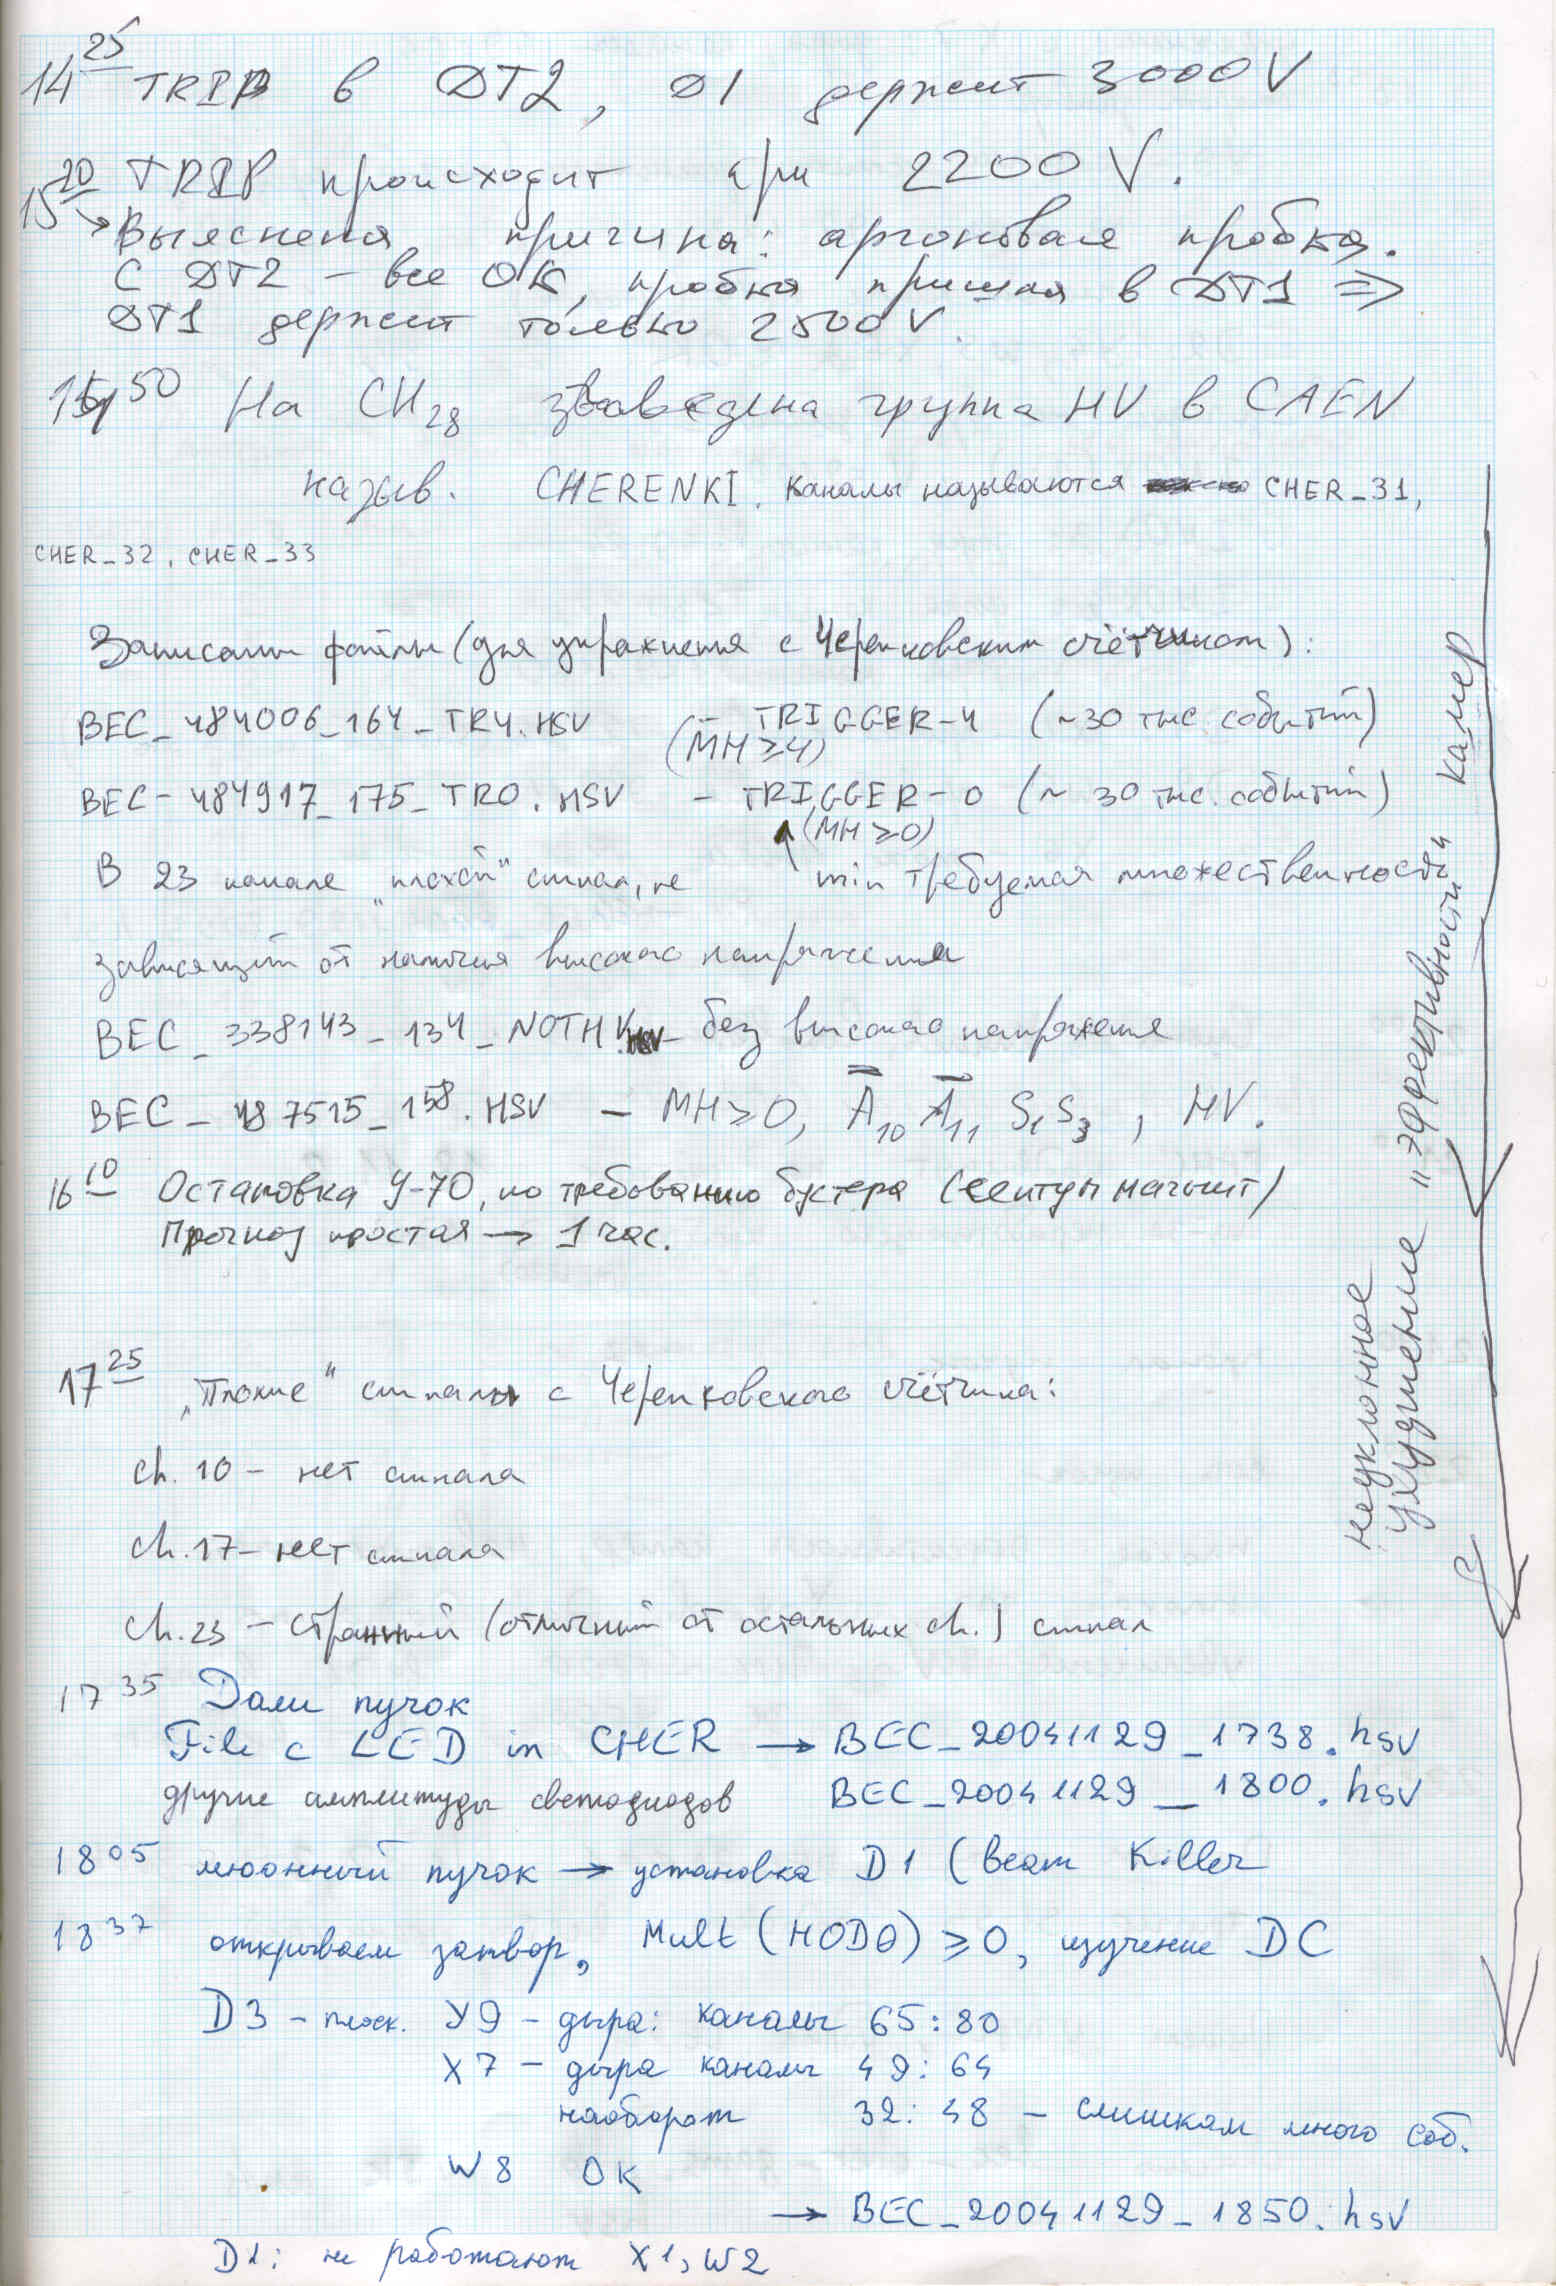 14 25 TRIP в DT2, D1 держит 3000V
15 20 TRIP происходит при 2200 V.
→ Выяснена причина: аргоновая пробка.
С DT2 – все ОК, пробка пришла в DT1 ⇒
DT1 держит только 2500 V.
15 50 На CH28 заведена группа HV в CAEN
назыв. CHERENKI. Каналы называются CHER_31,
CHER_32, CHER_33
Записаны файлы (для упражнения с Черенковским счётчиком):
BEC_484006_164_TR4.HSV – TRIGGER-4 (~30 тыс. событий)
(MH ≥ 4)
BEC-484917_175_TR0.HSV – TRIGGER-0 (~ 30 тыс. событий)
(MH ≥ 0)
В 23 канале „плохой" сигнал, не
min требуемая множественность
зависящий от наличия высокого напряжения
BEC_338143_134_NOTHV.HSV – без высокого напряжения
BEC_487515_158.HSV – MH≥0, A10 A11 S1 S3, HV.
16 10 Остановка У-70, по требованию бустера (септум магнит)
Прогноз простоя → 1 час.
17 25 „Плохие" сигналы с Черенковского счётчика:
ch. 10 – нет сигнала
ch. 17 – нет сигнала
ch. 23 – странный (отличный от остальных ch.) сигнал
17 35 Дали пучок
File с LED in CHER → BEC_20041129_1738.hsv
другие амплитуды светодиодов BEC_20041129_1800.hsv
18 05 мюонный пучок → установка D1 (Beam Killer
18 37 открываем затвор, Mult (HODO) ≥ 0, изучение DC
D3 – плоск. Y9 – дыра: каналы 65:80
X7 – дыра каналы 49:64
наоборот 32:48 – слишком много соб.
W8 OK
→ BEC_20041129_1850.hsv
D1: не работают X1, W2
неуклонное
ухудшение "эффективности" камер